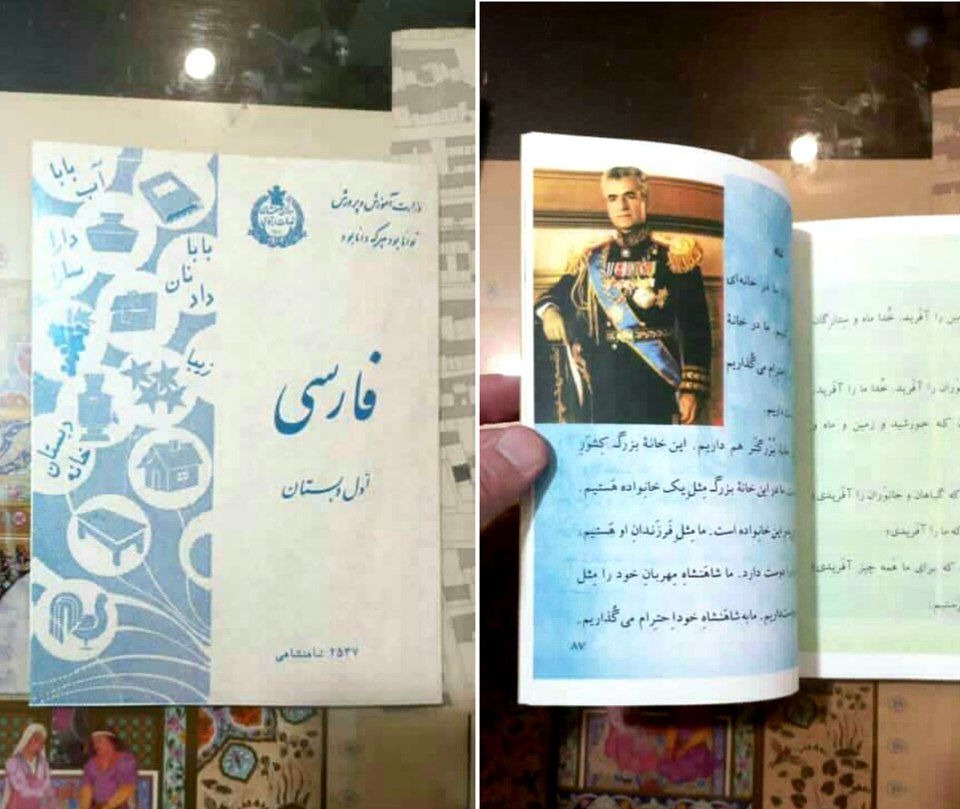 بابا
آب
دارا
سارا
بابا
نان
داد
زیبا
دبستان
خانه
وزارت آموزش و پرورش
توانا بود هر که دانا بود
فارسی
اول دبستان
۲۵۳۷ شاهنشاهی
ما در خانه‌ای
کنیم. ما در خانهٔ
احترام می‌گذاریم
داریم.
بُزُرگتَر هم داریم. این خانهٔ بزرگ کِشوَرِ
ما در این خانهٔ بزرگ مِثلِ یک خانواده هَستیم.
این خانواده است. ما مِثلِ فَرزَندانِ او هَستیم.
دوست دارد. ما شاهَنشاهِ مِهربانِ خود را مِثلِ
داریم. ما به شاهَنشاهِ خود احتِرام می‌گُذاریم.
۸۷
را آفرید. خُدا ماه و سِتارِگان
را آفَرید. خُدا ما را آفَرید.
که خورشید و زمین و ماه و
که گیاهان و جانوَران را آفَریدی
که ما را آفَریدی
که برای ما همه چیز آفَریدی